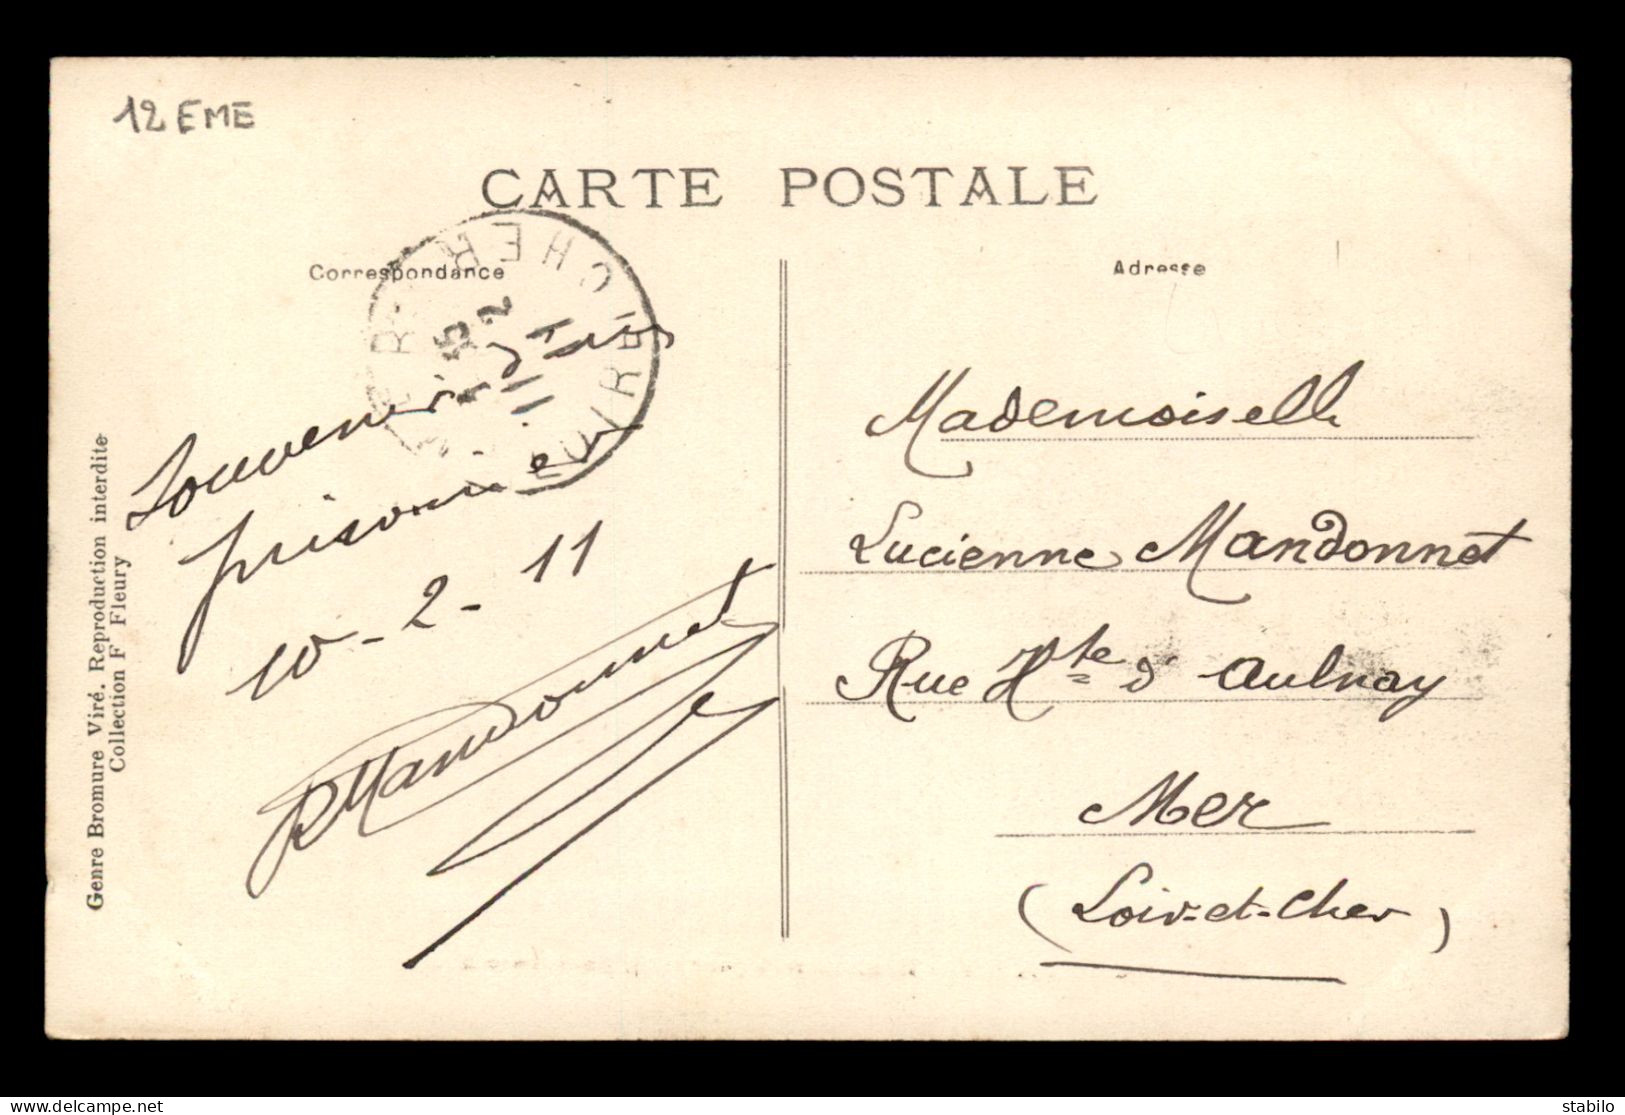 12 EME
CARTE POSTALE
Correspondance
Adresse
Souvenir
prisonnier
10-2-11
Mandonnet
Mademoiselle
Lucienne Mandonnet
Rue Hte d'Aulnay
Mer
(Loir-et-Cher)
MER LOIR ET CHER
Genre Bromure Viré. Reproduction interdite
Collection F Fleury
stabilo